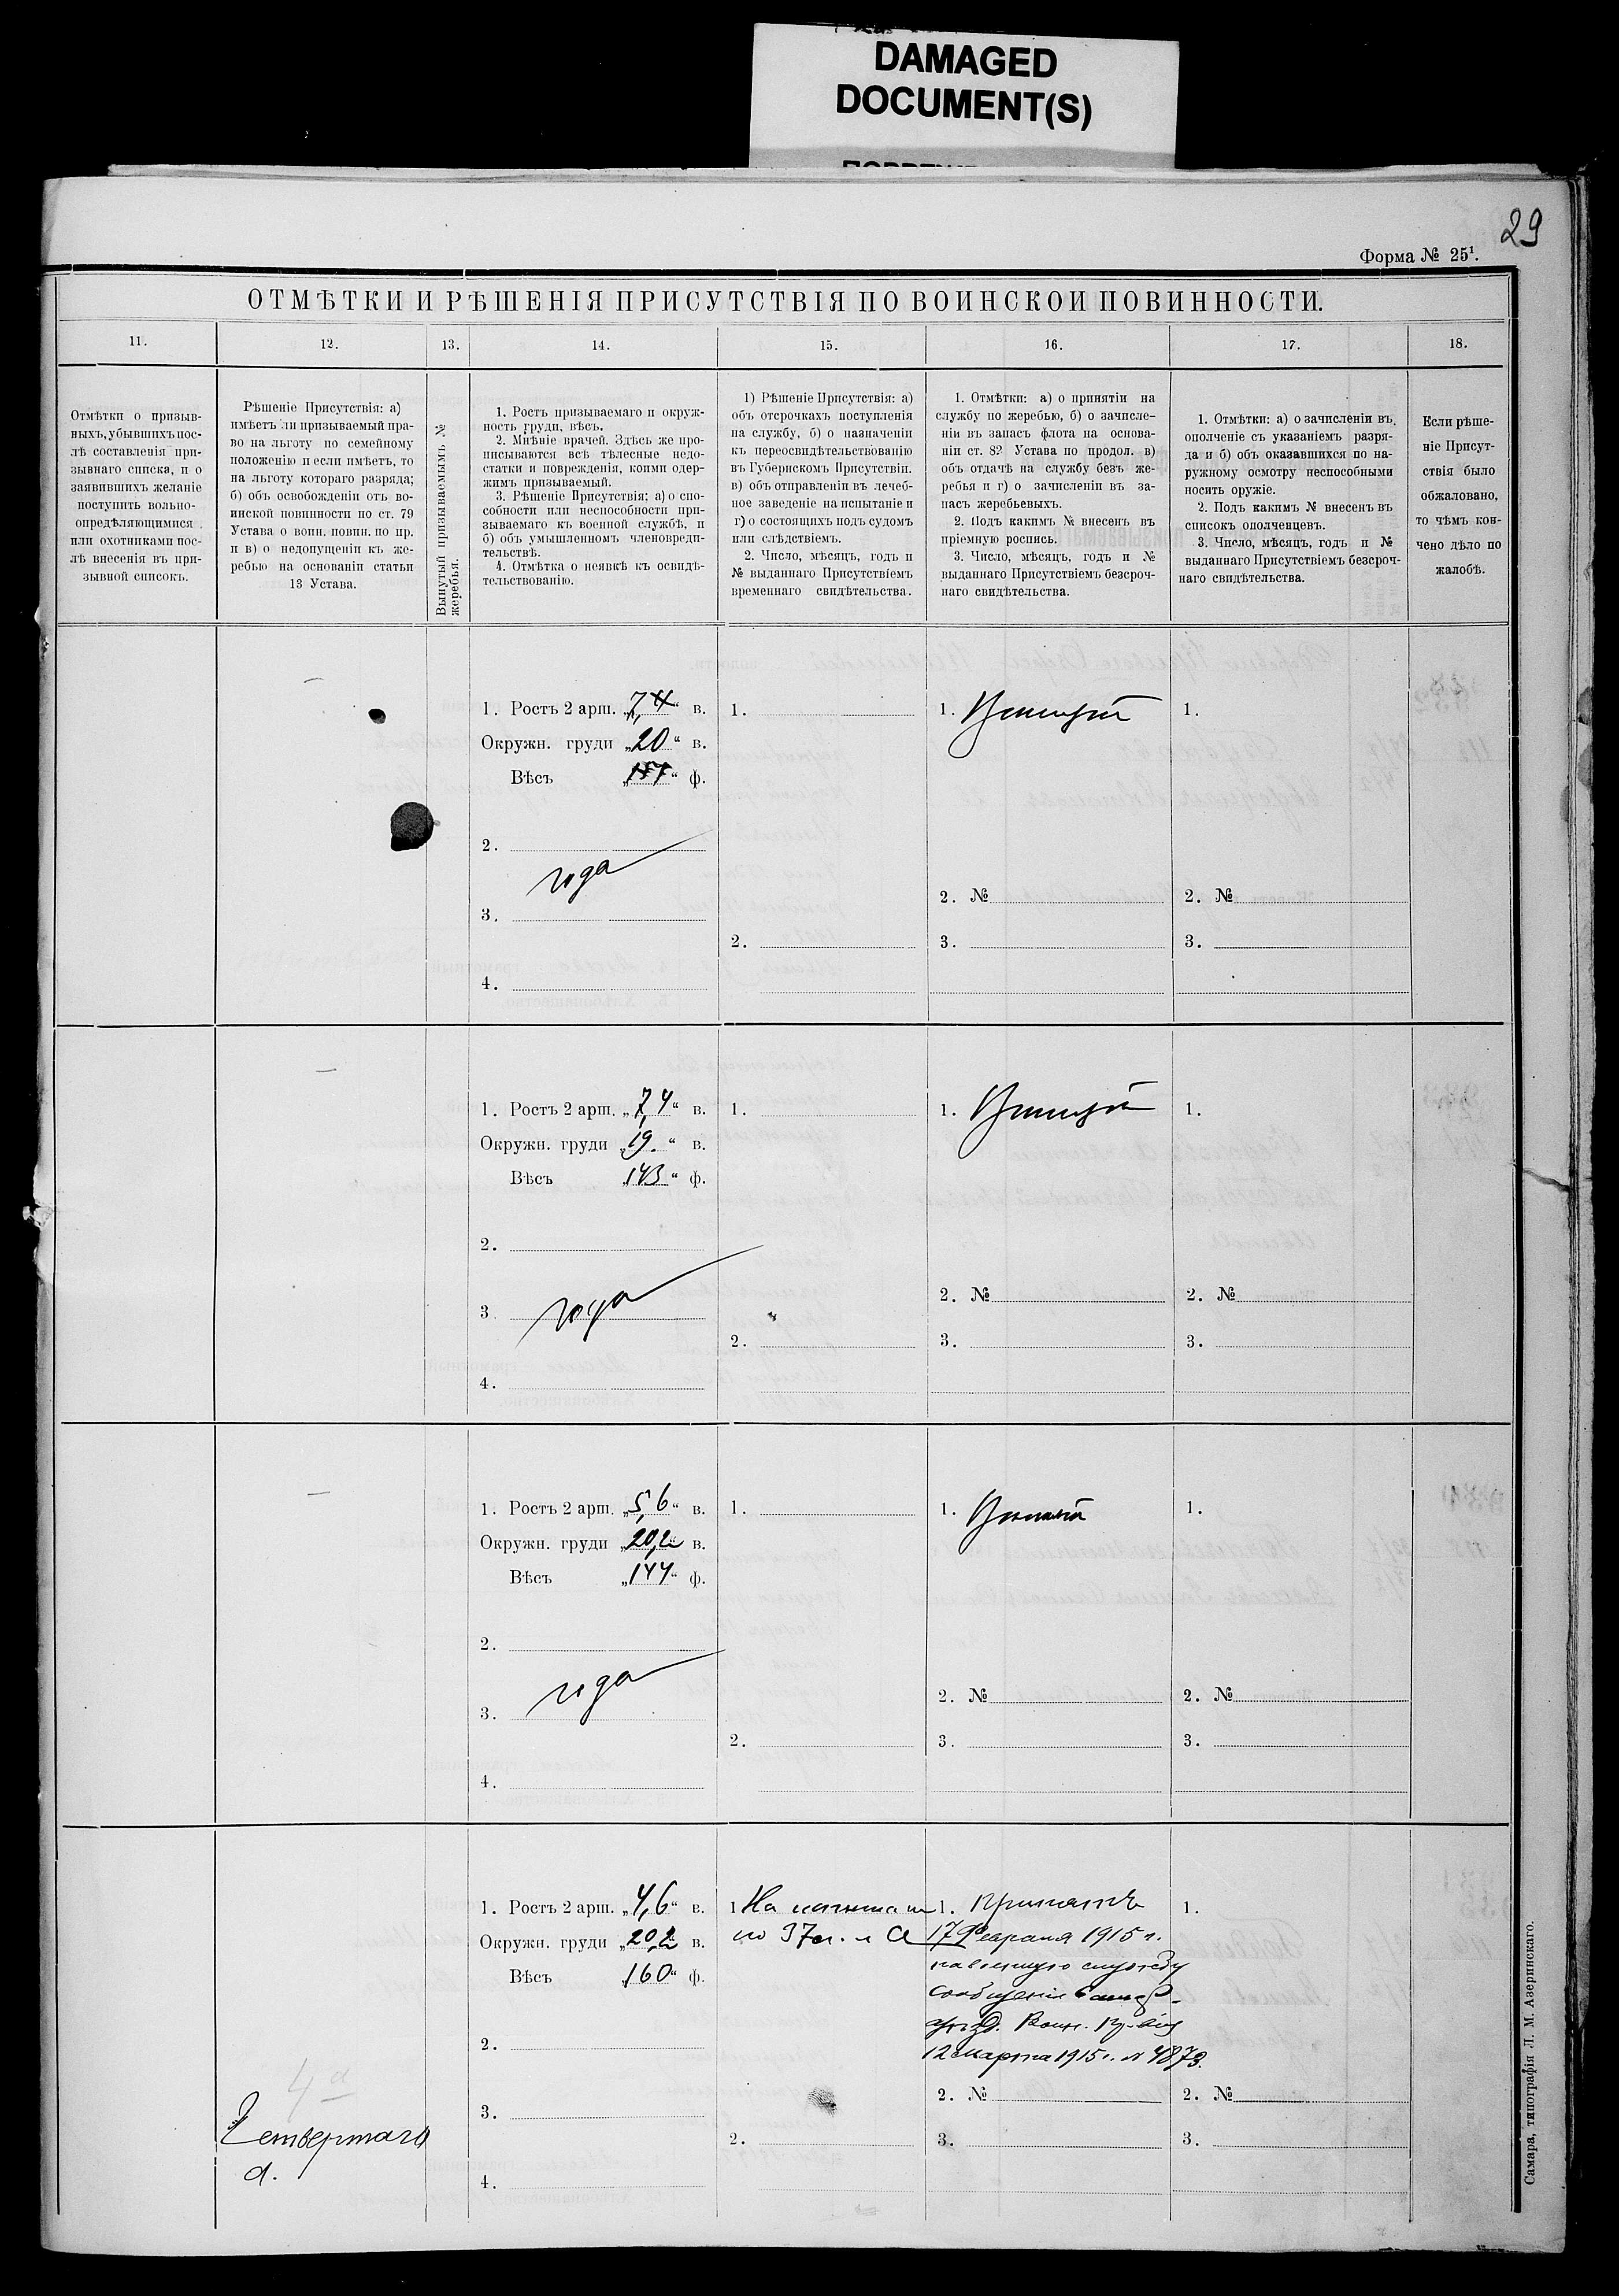 DAMAGED
DOCUMENT(S)
29
Форма № 25¹.
ОТМѢТКИ И РѢШЕНІЯ ПРИСУТСТВІЯ ПО ВОИНСКОЙ ПОВИННОСТИ.
11.
12.
13.
14.
15.
16.
17.
18.
Отмѣтки о призыв-
ныхъ, убывшихъ пос-
лѣ составленія при-
зывнаго списка, и о
заявившихъ желаніе
поступить вольно-
опредѣляющимися
или охотниками пос-
лѣ внесенія въ при-
зывной списокъ.
Рѣшеніе Присутствія: а)
имѣетъ ли призываемый пра-
во на льготу по семейному
положенію и если имѣетъ, то
на льготу котораго разряда;
б) объ освобожденіи отъ во-
инской повинности по ст. 79
Устава о воин. повин. по пр.
и в) о недопущеніи къ же-
ребью на основаніи статьи
13 Устава.
Вынутый призываемымъ №
жеребья.
1. Ростъ призываемаго и окруж-
ность груди, вѣсъ.
2. Мнѣніе врачей. Здѣсь же про-
писываются всѣ тѣлесные недо-
статки и поврежденія, коими одер-
жимъ призываемый.
3. Рѣшеніе Присутствія: а) о спо-
собности или неспособности при-
зываемаго къ военной службѣ, и
б) объ умышленномъ членовреди-
тельствѣ.
4. Отмѣтка о неявкѣ къ освидѣ-
тельствованію.
1) Рѣшеніе Присутствія: а)
объ отсрочкахъ поступленія
на службу, б) о назначеніи
къ переосвидѣтельствованію
въ Губернскомъ Присутствіи.
в) объ отправленіи въ лечеб-
ное заведеніе на испытаніе и
г) о состоящихъ подъ судомъ
или слѣдствіемъ.
2. Число, мѣсяцъ, годъ и
№ выданнаго Присутствіемъ
временнаго свидѣтельства.
1. Отмѣтки: а) о принятіи на
службу по жеребью, б) о зачисле-
ніи въ запасъ флота на основа-
ніи ст. 82 Устава по продол. в)
объ отдачѣ на службу безъ же-
ребья и г) о зачисленіи въ за-
пасъ жеребьевыхъ.
2. Подъ какимъ № внесенъ въ
пріемную роспись.
3. Число, мѣсяцъ, годъ и №
выданнаго Присутствіемъ безсроч-
наго свидѣтельства.
1. Отмѣтки: а) о зачисленіи въ
ополченіе съ указаніемъ разря-
да и б) объ оказавшихся по на-
ружному осмотру неспособными
носить оружіе.
2. Подъ какимъ № внесенъ въ
списокъ ополченцевъ.
3. Число, мѣсяцъ, годъ и №
выданнаго Присутствіемъ безсроч-
наго свидѣтельства.
Если рѣше-
ніе Присут-
ствія было
обжаловано,
то чѣмъ кон-
чено дѣло по
жалобѣ.
1. Ростъ 2 арш. „7,4“ в.
Окружн. груди „20“ в.
Вѣсъ „157“ ф.
2.
года
3.
4.
1.
2.
1.
2. №
3.
1.
2. №
3.
1. Ростъ 2 арш. „7,4“ в.
Окружн. груди „19“ в.
Вѣсъ „143“ ф.
2.
3. года
4.
1.
2.
1.
2. №
3.
1.
2. №
3.
1. Ростъ 2 арш. „5,6“ в.
Окружн. груди „20,2“ в.
Вѣсъ „144“ ф.
2.
года
3.
4.
1.
2.
1.
2. №
3.
1.
2. №
3.
4а
Четвертаго
д.
1. Ростъ 2 арш. „4,6“ в.
Окружн. груди „20,2“ в.
Вѣсъ „160“ ф.
2.
3.
4.
1. На
по 37 ст.
2.
1. Принятъ
17 Февраля 1915 г.
на военную службу
сообщеніе
уѣзд. Воин.
12 марта 1915 г. № 4873.
2. №
3.
1.
2. №
3.
Самара, типографія Л. М. Азеринскаго.